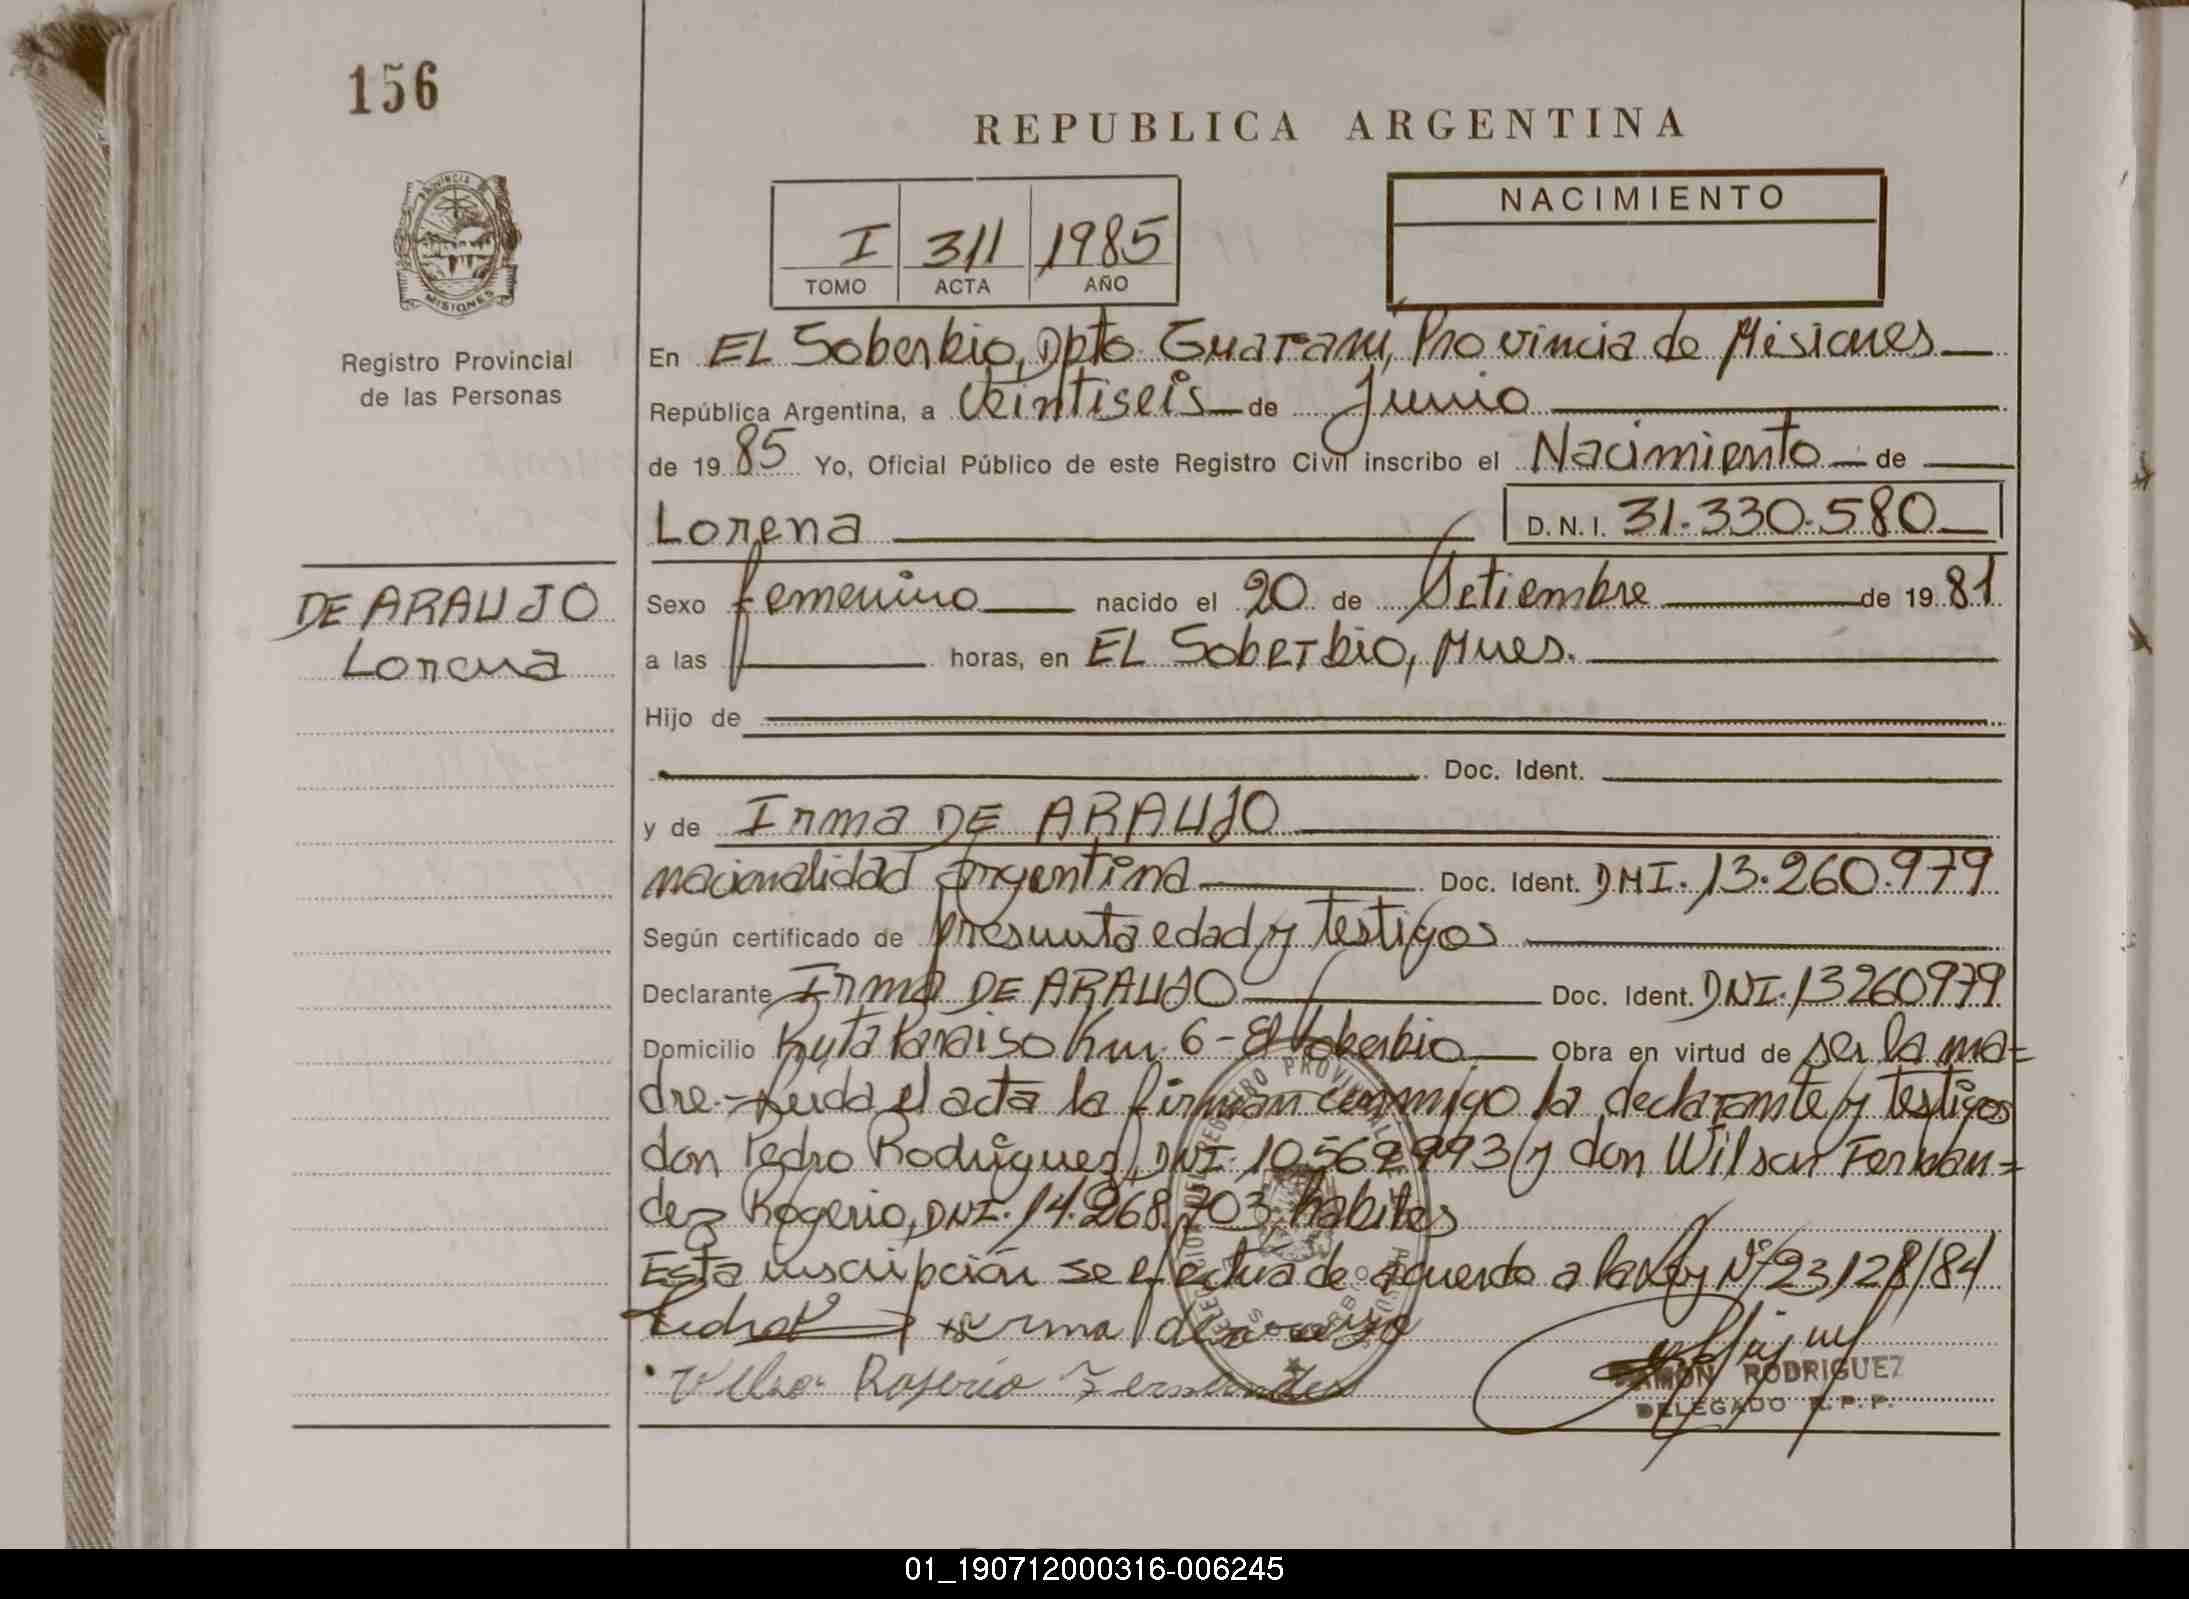 156
REPUBLICA ARGENTINA
PROVINCIA DE
MISIONES
Registro Provincial
de las Personas
I 311 1985
TOMO ACTA AÑO
NACIMIENTO
En EL Soberbio, Dpto Guarani, Provincia de Misiones
República Argentina, a Veintiseis de Junio
de 19 85 Yo, Oficial Público de este Registro Civil inscribo el Nacimiento de
Lorena D.N.I. 31.330.580
DE ARAUJO
Lorena
Sexo femenino nacido el 20 de Setiembre de 19 81
a las horas, en EL Soberbio, Mnes.
Hijo de
Doc. Ident.
y de Irma DE ARAUJO
nacionalidad argentina Doc. Ident. DNI. 13.260.979
Según certificado de presunta edad y testigos
Declarante Irma DE ARAUJO Doc. Ident. DNI. 13260979
Domicilio Ruta Paraiso Km. 6 - El Soberbio Obra en virtud de ser la ma=
dre.- el acta la firman conmigo la declarante y testigos
don Pedro Rodriguez, DNI. y don Wilson Fernan=
dez Rogerio, DNI. 14.268.703 habiles
Esta inscripción se efectua de acuerdo a la Ley Nº 23.128/84
Pedro R Irma de araujo
Rogerio Fernandez
RAMON RODRIGUEZ
DELEGADO R.P.P.
01_190712000316-006245